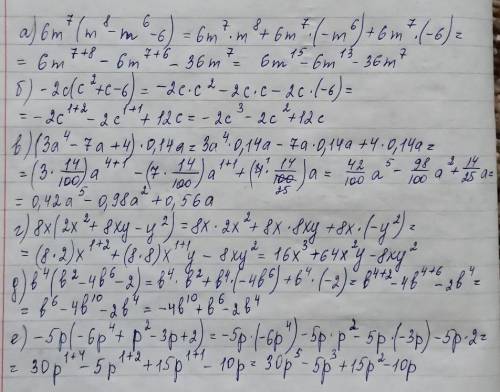 а) 6m⁷(m⁸-m⁶-6) = 6m⁷·m⁸+6m⁷·(-m⁶)+6m⁷·(-6)=
= 6m⁷⁺⁸-6m⁷⁺⁶-36m⁷= 6m¹⁵-6m¹³-36m⁷
б) -2c(c²+c-6)=-2c·c²-2c·c-2c·(-6)=
=-2c¹⁺²-2c¹⁺¹+12c=-2c³-2c²+12c
в)(3a⁴-7a+4)·0,14a=3a⁴·0,14a-7a·0,14a+4·0,14a=
=(3·14/100)a⁴⁺¹-(7·14/100)a¹⁺¹+(4¹·14/100 25)a=42/100a⁵-98/100a²+14/25a=
=0,42a⁵-0,98a²+0,56a
г) 8x(2x²+8xy-y²)=8x·2x²+8x·8xy+8x·(-y²)=
=(8·2)x¹⁺²+(8·8)x¹⁺¹y-8xy²=16x³+64x²y-8xy²
д) b⁴(b²-4b⁶-2)=b⁴·b²+b⁴·(-4b⁶)+b⁴·(-2)=b⁴⁺²-4b⁴⁺⁶-2b⁴=
=b⁶-4b¹⁰-2b⁴=-4b¹⁰+b⁶-2b⁴
е) -5p(-6p⁴+p²-3p+2)=-5p·(-6p⁴)-5p·p²-5p·(-3p)-5p·2=
=30p¹⁺⁴-5p¹⁺²+15p¹⁺¹-10p=30p⁵-5p³+15p²-10p